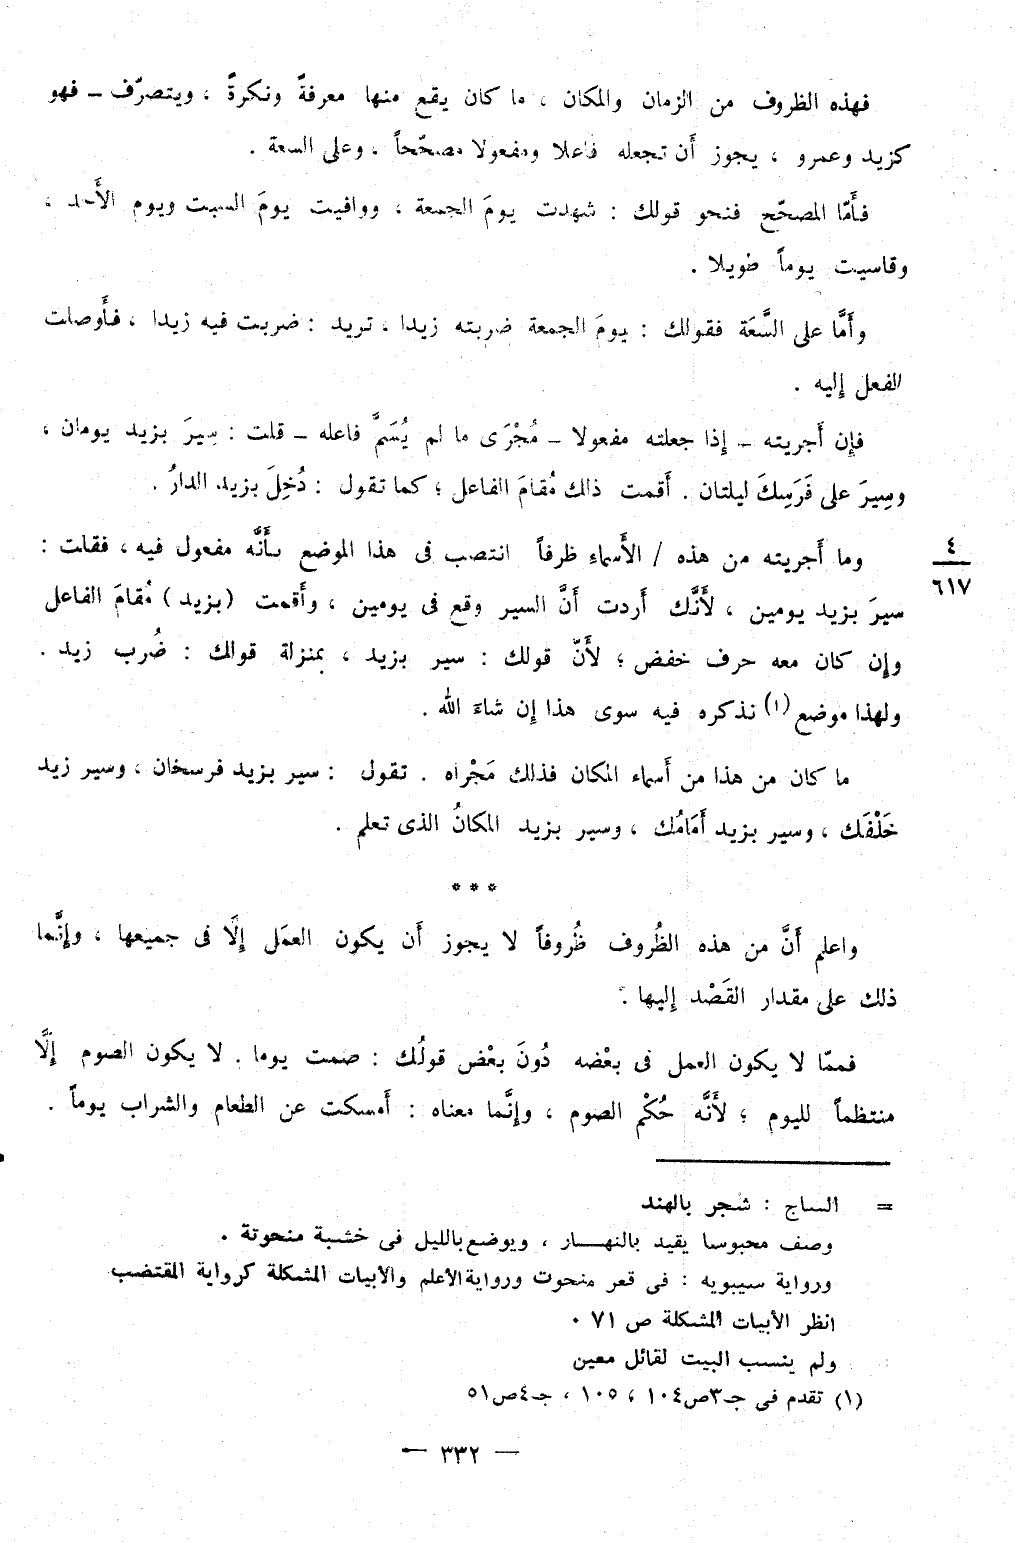 فهذه الظروف من الزمان والمكان ، ما كان يقع منها معرفةً ونكرةً ، ويتصرّف – فهو
كزيد وعمرو ، يجوز أَن تجعله فاعلا ومفعولا مصحّحاً ، وعلى السعة .
فأَمّا المصحّح فنحو قولك : شهدت يومَ الجمعة ، ووافيت يومَ السبت ويوم الأَحد ،
وقاسيت يوماً طويلا .
وأَمَّا على السَّعَة فقولك : يومَ الجمعة ضربته زيدا ، تريد : ضربت فيه زيدا ، فأَوصلت
الفعل إِليه .
فإِن أَجريته – إِذا جعلته مفعولا – مُجْرَى ما لم يُسَمَّ فاعله – قلت : سِيرَ بزيد يومان ،
وسِيرَ على فَرَسِكَ ليلتان . أَقمت ذلك مُقامَ الفاعل ؛ كما تقول : دُخِلَ بزيد الدارُ .
وما أَجريته من هذه / الأَسماءِ ظرفاً انتصب فى هذا الموضع بأَنَّه مفعول فيه ، فقلت :
٤
٦١٧
سيرَ بزيد يومين ، لأَنَّك أَردت أَنَّ السير وقع فى يومين ، وأَقمت (بزيد) مُقامَ الفاعل
وإِن كان معه حرف خفض ؛ لأَنّ قولك : سير بزيد ، بمنزلة قولك : ضُرب زيد .
ولهذا موضع (١) نذكره فيه سوى هذا إِن شاءَ الله .
ما كان من هذا من أَسماءِ المكان فذلك مَجْراه . تقول : سير بزيد فرسخان ، وسير زيد
خَلْفَك ، وسير بزيد أَمَامُك ، وسير بزيد المكانُ الذى تعلم .
* * *
واعلم أَنَّ من هذه الظُروف ظُروفاً لا يجوز أَن يكون العمَل إِلَّا فى جميعها ، وإِنَّما
ذلك على مقدار القَصْد إِليها .
فممّا لا يكون العمل فى بعْضه دُونَ بعْض قولُك : صمت يوما . لا يكون الصوم إِلَّا
منتظماً لليوم ؛ لأَنَّه حُكْم الصوم ، وإِنَّما معناه : أَمسكت عن الطعام والشراب يوماً .
= الساج : شجر بالهند
وصف محبوسا يقيد بالنهار ، ويوضع بالليل فى خشبة منحوتة .
ورواية سيبويه : فى قعر منحوت ورواية الأعلم والأبيات المشكلة كرواية المقتضب
انظر الأبيات المشكلة ص ٧١ .
ولم ينسب البيت لقائل معين
(١) تقدم فى جـ٣ص١٠٤ ، ١٠٥ ، جـ٤ص٥١
— ٣٣٢ —